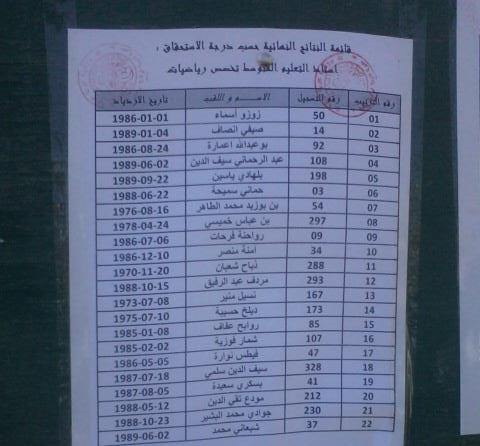 قائمة النتائج النهائية حسب درجة الاستحقاق :
أساتذة التعليم المتوسط تخصص رياضيات
رقم الترتيب رقم التسجيل الاسم و اللقب تاريخ الازدياد
01 50 زوزو أسماء 1986-01-01
02 14 صيفي انصاف 1989-01-04
03 92 بوعبدالله اعمارة 1986-08-24
04 108 عبد الرحماني سيف الدين 1989-06-02
05 198 بلهادي ياسين 1989-09-22
06 03 حماني سميحة 1988-06-22
07 54 بن بوزيد محمد الطاهر 1976-08-16
08 297 بن عباس خميسي 1978-04-24
09 09 رواحنة فرحات 1986-07-06
10 34 أمنة منصر 1986-12-10
11 288 ذباح شعبان 1970-11-20
12 293 مردف عبد الرفيق 1988-10-15
13 167 نسيل منير 1973-07-08
14 173 دبلخ حسيبة 1975-07-10
15 85 روابح عفاف 1985-01-08
16 107 شمار فوزية 1985-02-02
17 47 فيطس نوارة 1986-05-05
18 328 سيف الدين سلمى 1987-07-18
19 41 بسكري سعيدة 1987-08-05
20 212 مودع تقي الدين 1988-05-12
21 230 جوادي محمد البشير 1988-10-23
22 37 شيعاني محمد 1989-06-02